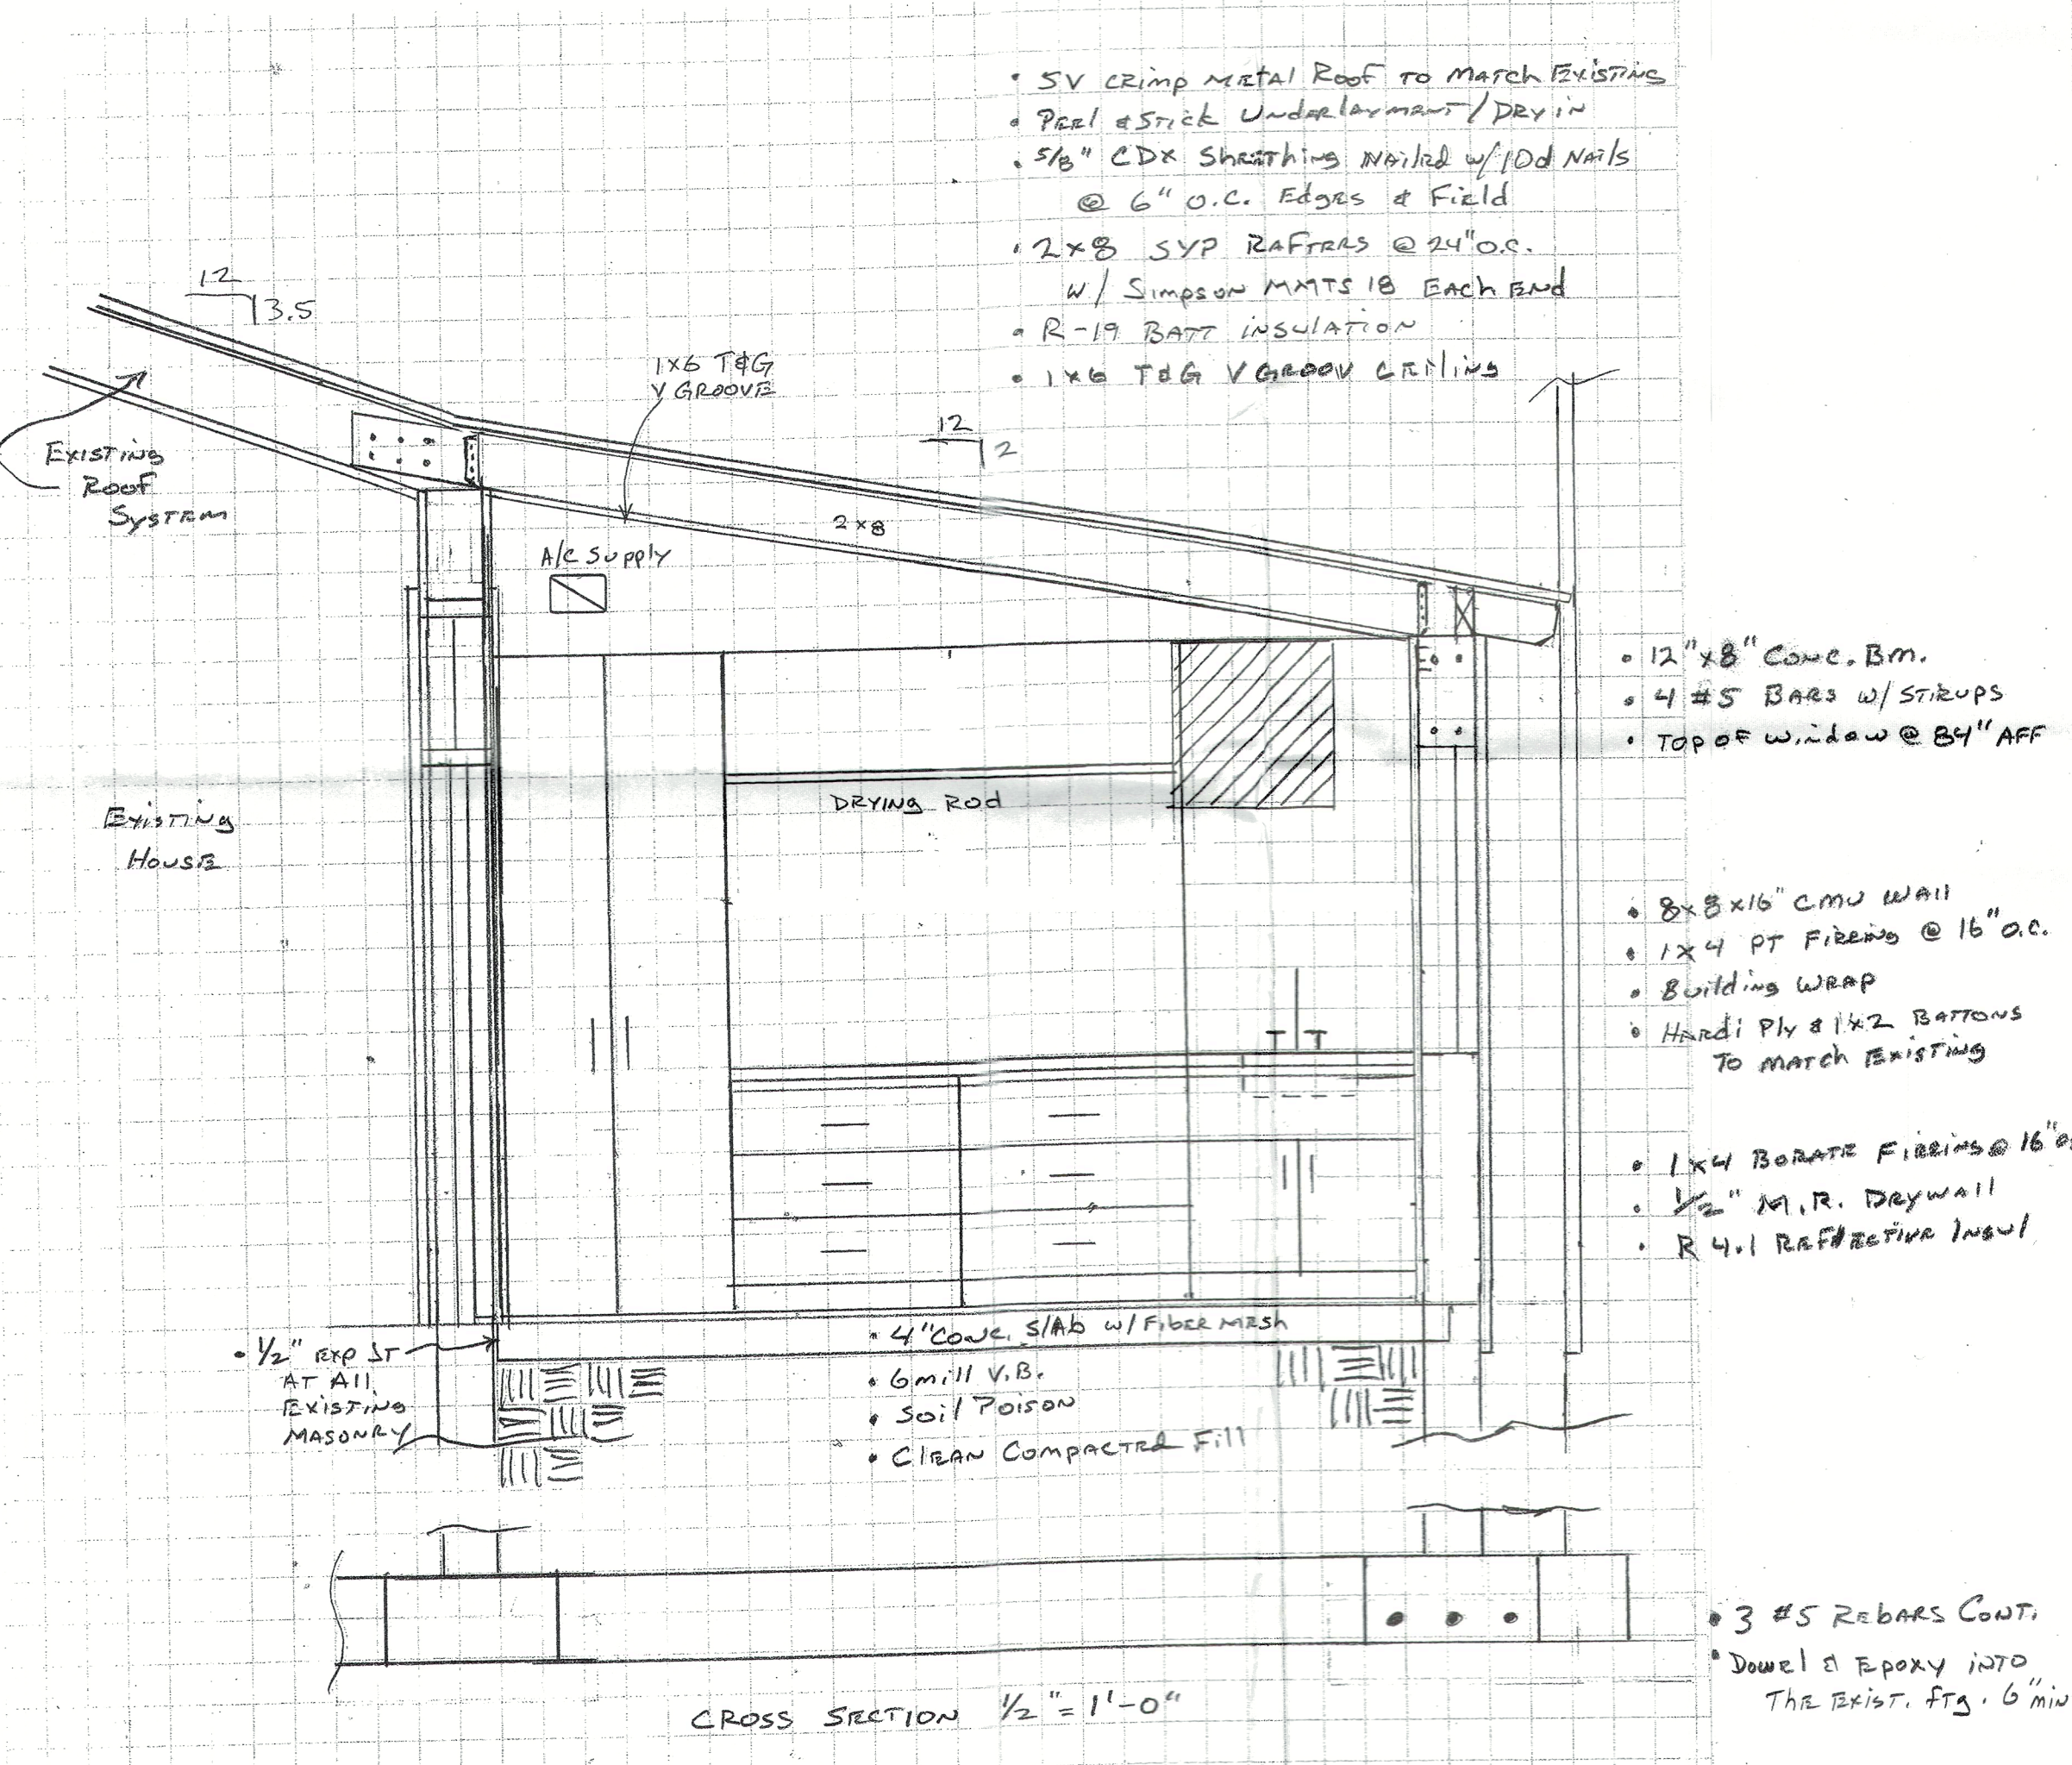 • 5V CRIMP METAL ROOF TO MATCH EXISTING
• PEEL & STICK UNDERLAYMENT / DRY IN
• 5/8" CDX SHEATHING NAILED W/ 10d NAILS
@ 6" O.C. EDGES & FIELD
• 2x8 SYP RAFTERS @ 24" O.C.
W/ SIMPSON MMTS 18 EACH END
• R-19 BATT INSULATION
• 1x6 T&G V GROOV CEILING
12
3.5
1x6 T&G
V GROOVE
12
2
EXISTING
ROOF
SYSTEM
2x8
A/C SUPPLY
• 12"x8" CONC. BM.
• 4 #5 BARS W/ STIRUPS
• TOP OF WINDOW @ 84" AFF
DRYING ROD
EXISTING
HOUSE
• 8x8x16" CMU WALL
• 1x4 PT FIRRING @ 16" O.C.
• BUILDING WRAP
• HARDI PLY & 1x2 BATTONS
TO MATCH EXISTING
• 1x4 BORATE FIRRING @ 16" O.
• 1/2" M.R. DRYWALL
• R 4.1 REFLECTIVE INSUL
• 1/2" EXP JT
AT ALL
EXISTING
MASONRY
• 4" CONC. SLAB W/ FIBER MESH
• 6 mill V.B.
• SOIL POISON
• CLEAN COMPACTED FILL
• 3 #5 REBARS CONT.
• DOWEL & EPOXY INTO
THE EXIST. FTG. 6" MIN
CROSS SECTION 1/2" = 1'-0"